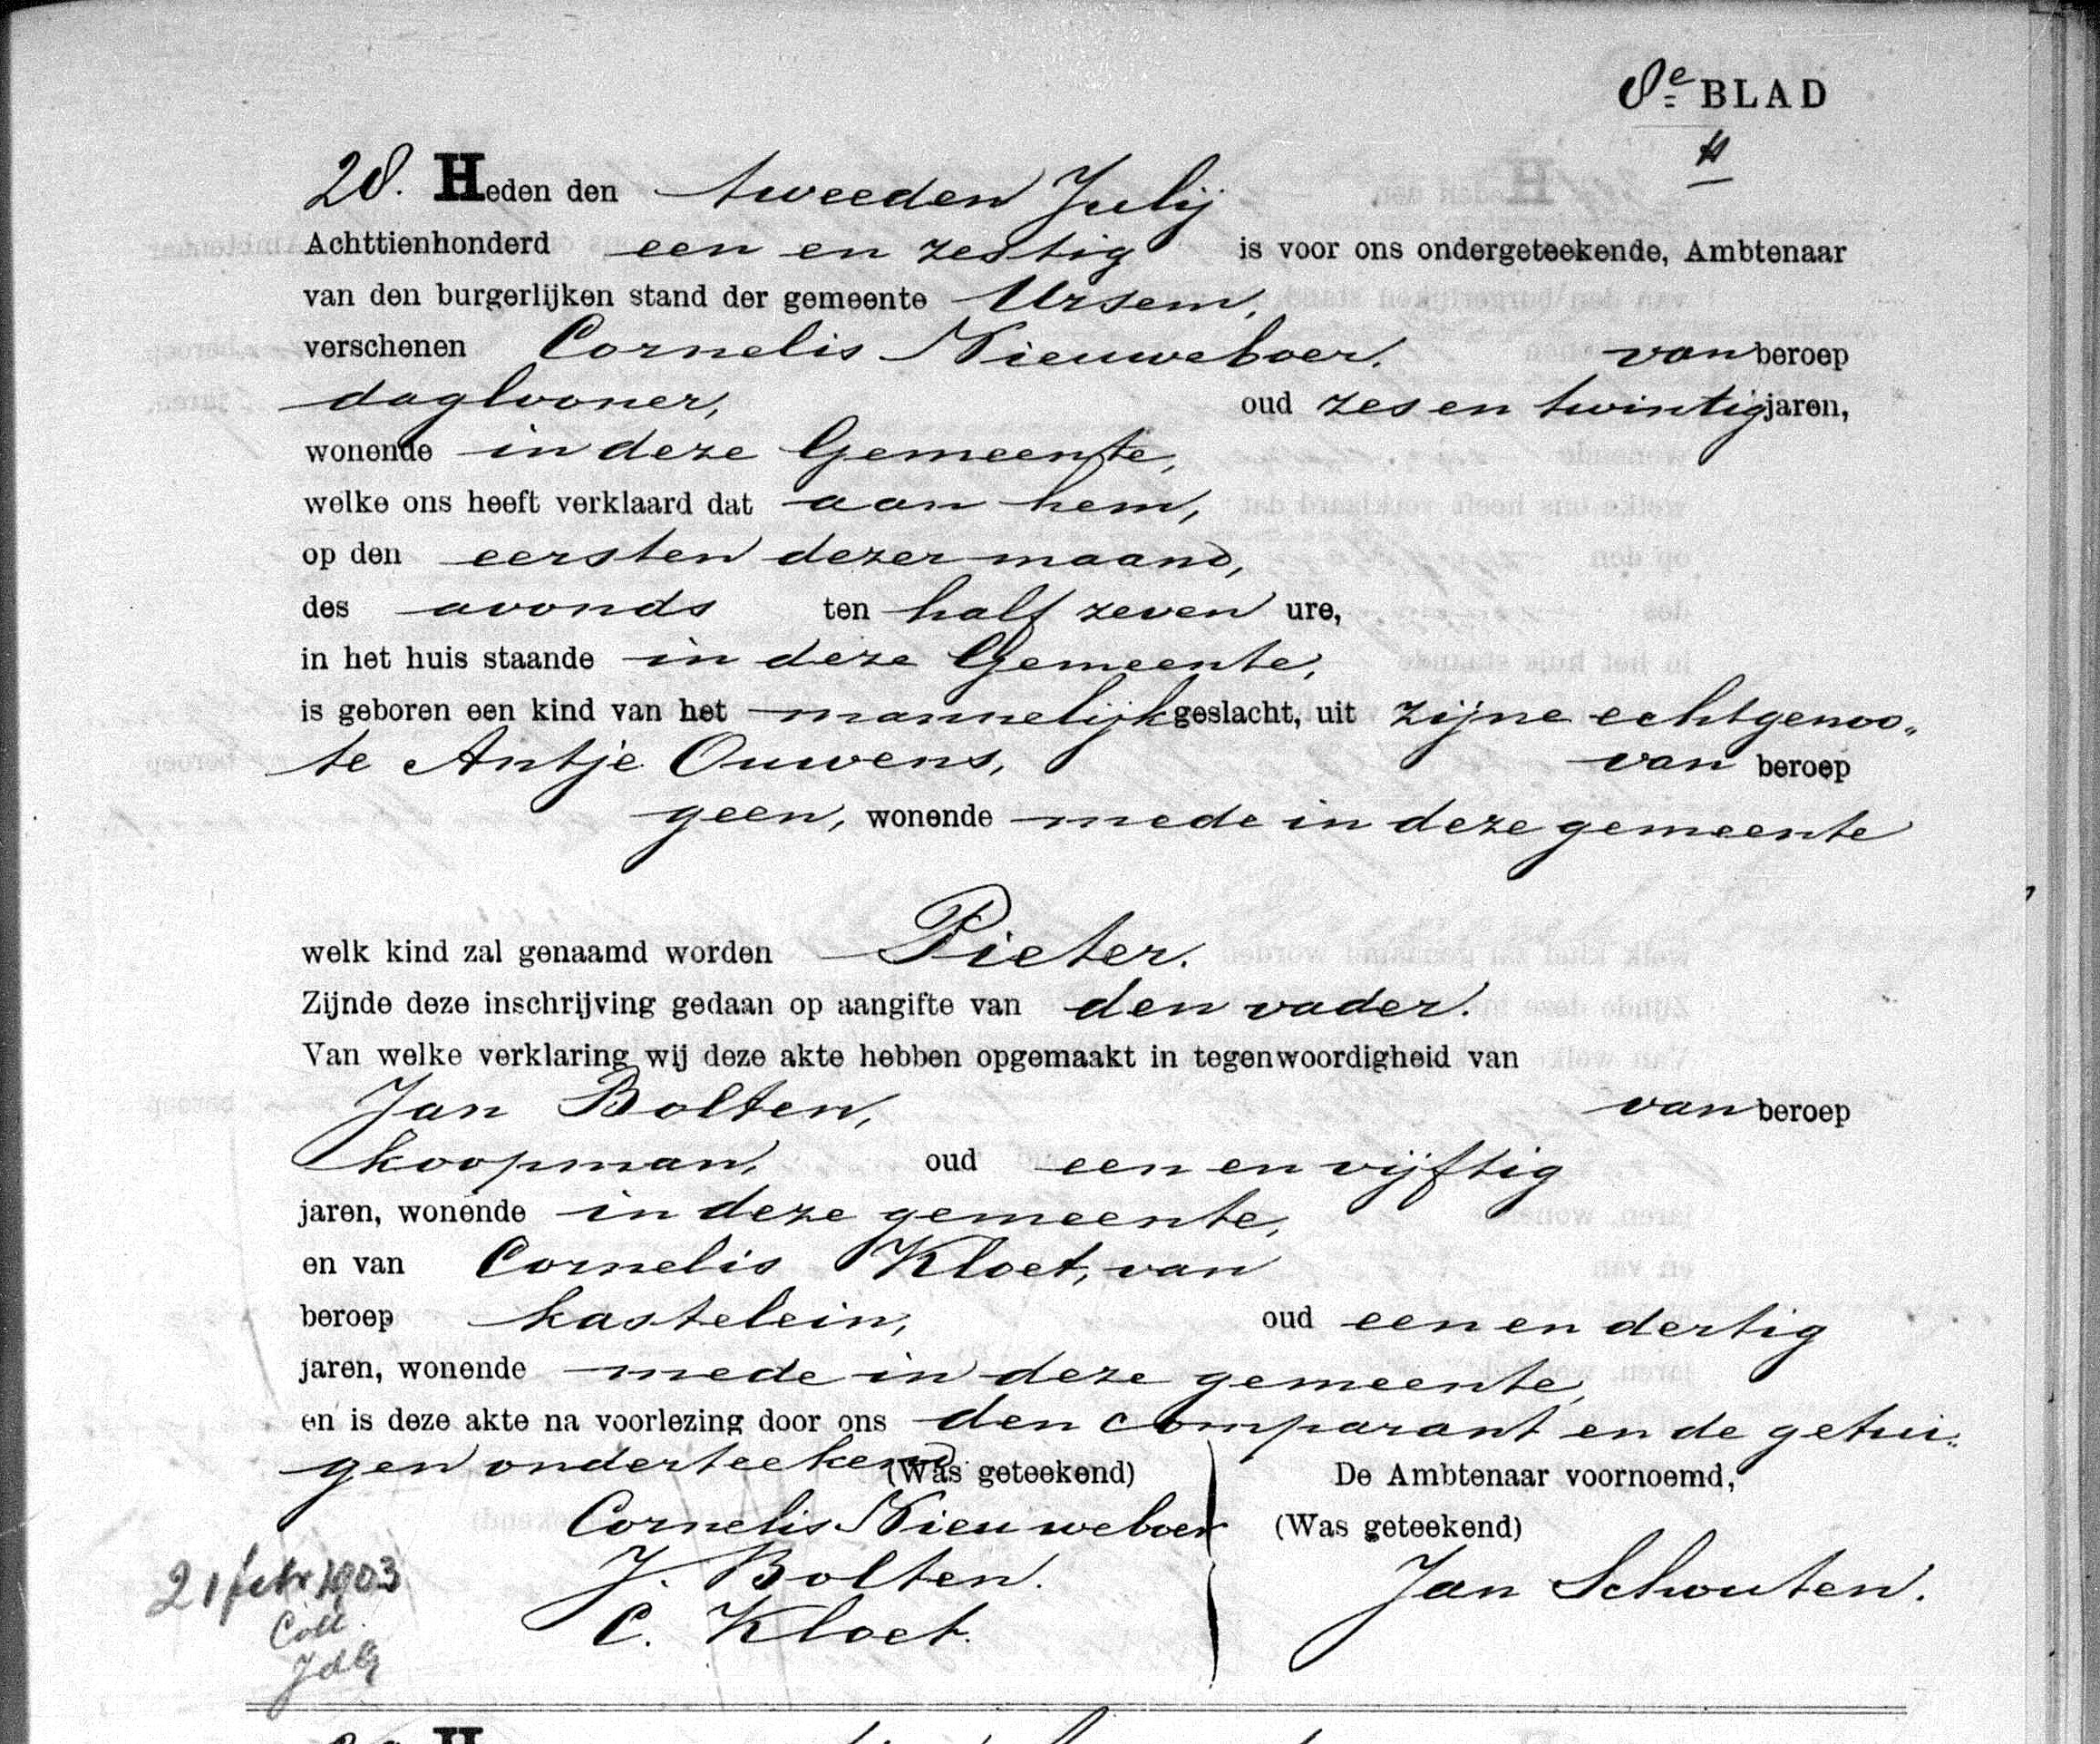 8e BLAD
28. Heden den tweeden Julij
Achttienhonderd een en zestig is voor ons ondergeteekende, Ambtenaar
van den burgerlijken stand der gemeente Ursem,
verschenen Cornelis Nieuweboer, van beroep
daglooner, oud zes en twintig jaren,
wonende in deze Gemeente,
welke ons heeft verklaard dat aan hem,
op den eersten dezer maand,
des avonds ten half zeven ure,
in het huis staande in deze Gemeente,
is geboren een kind van het mannelijk geslacht, uit zijne echtgenoo„
te Antje Ouwens, van beroep
geen, wonende mede in deze gemeente
welk kind zal genaamd worden Pieter.
Zijnde deze inschrijving gedaan op aangifte van den vader.
Van welke verklaring wij deze akte hebben opgemaakt in tegenwoordigheid van
Jan Bolten, van beroep
koopman, oud een en vijftig
jaren, wonende in deze gemeente,
en van Cornelis Kloet, van
beroep kastelein, oud een en dertig
jaren, wonende mede in deze gemeente,
en is deze akte na voorlezing door ons den comparant en de getui„
gen onderteekend. (Was geteekend) De Ambtenaar voornoemd,
Cornelis Nieuweboer (Was geteekend)
J. Bolten. Jan Schouten.
C. Kloet.
21 febr 1903
Coll.